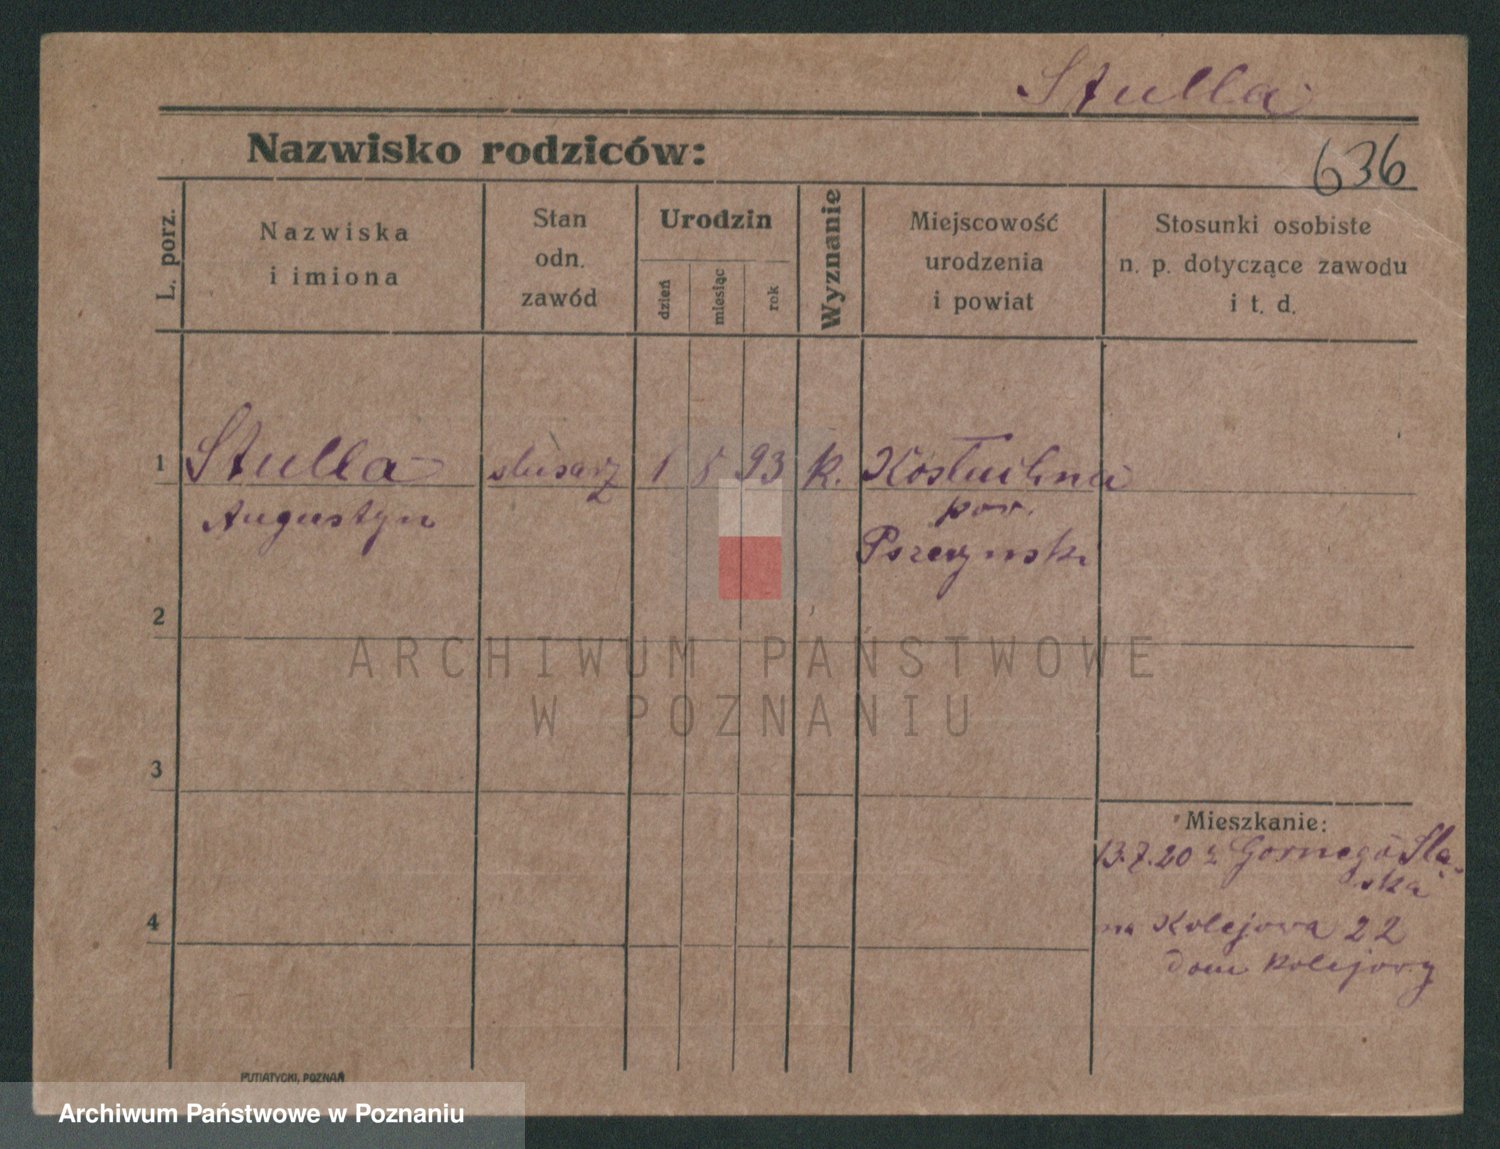 Stulla
Nazwisko rodziców:
636
L. porz.
Nazwiska
i imiona
Stan
odn.
zawód
Urodzin
dzień
miesiąc
rok
Wyznanie
Miejscowość
urodzenia
i powiat
Stosunki osobiste
n. p. dotyczące zawodu
i t. d.
1 Stulla ślusarz 1 8 93 k. Kostuchna
Augustyn pow.
Pszczynski
2
ARCHIWUM PAŃSTWOWE
W POZNANIU
3
Mieszkanie:
13.7.20 z Gornego Slą-
ska
4
na Kolejowa 22
dom kolejowy
PUTIATYCKI, POZNAŃ
Archiwum Państwowe w Poznaniu